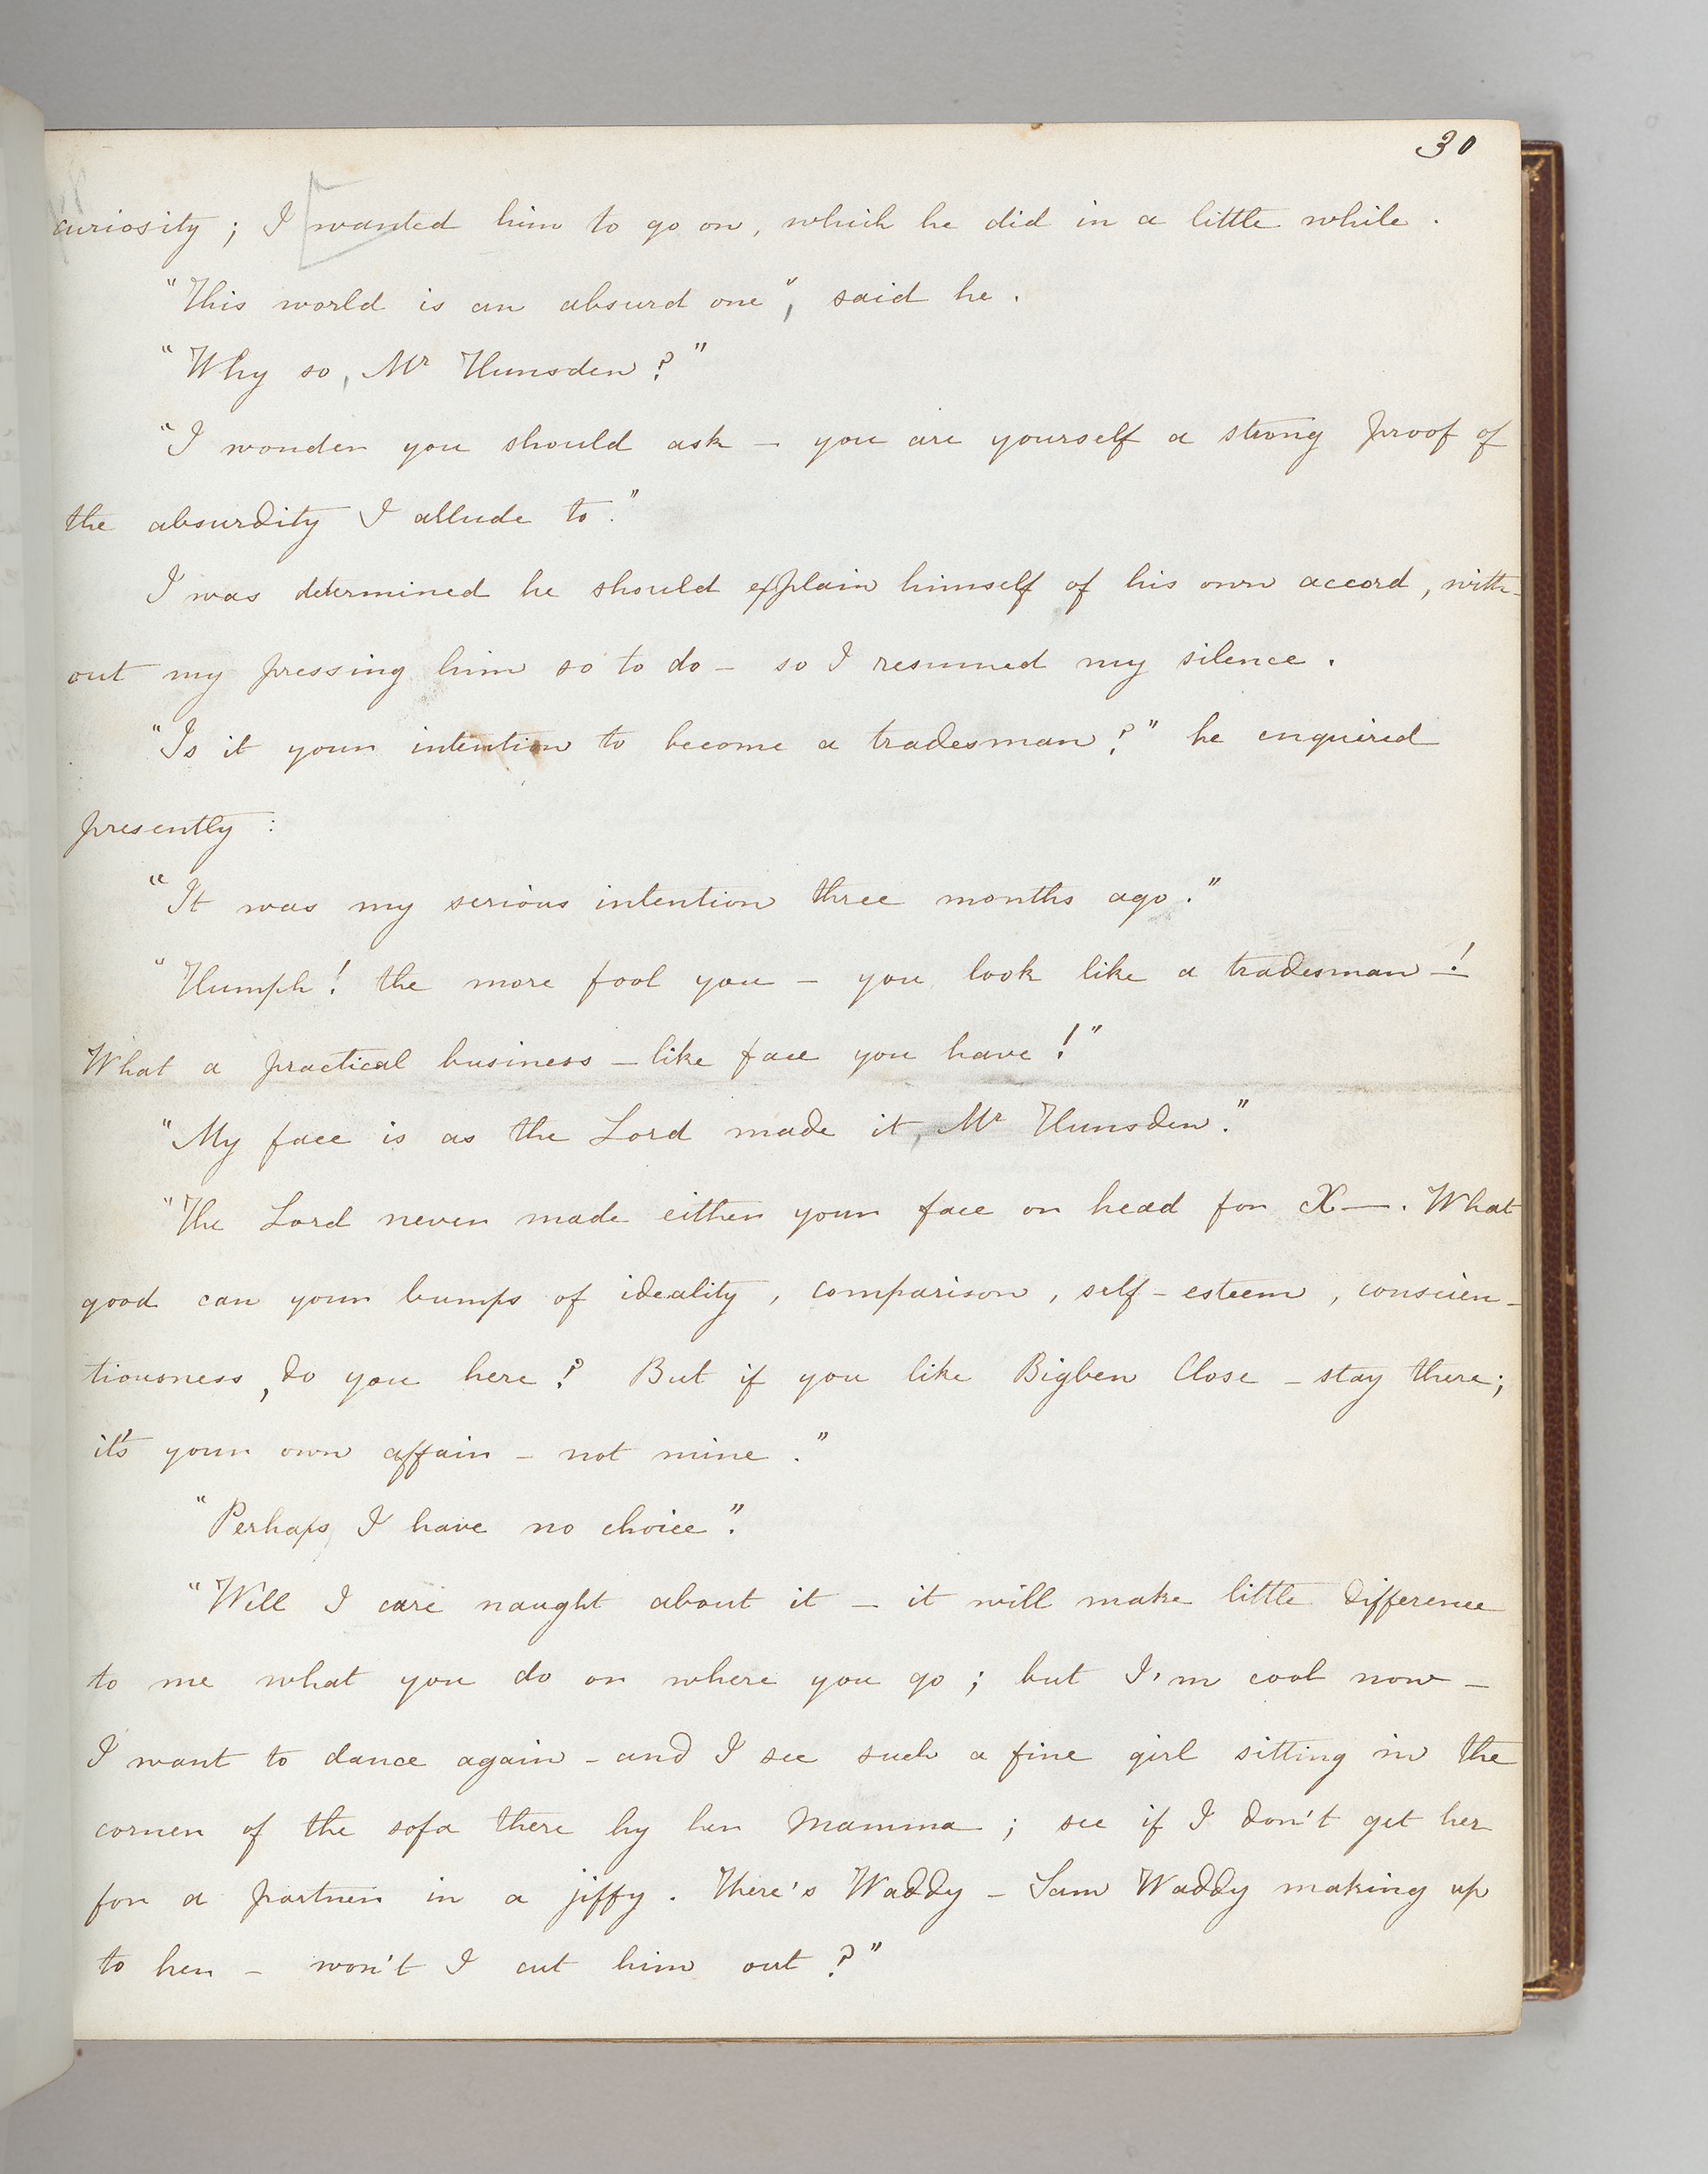 30
curiosity ; I wanted him to go on, which he did in a little while .
"This world is an absurd one", said he .
"Why so, Mr Hunsden ?"
"I wonder you should ask — you are yourself a strong proof of
the absurdity I allude to."
I was determined he should explain himself of his own accord, with-
out my pressing him so to do — so I resumed my silence .
"Is it your intention to become a tradesman ?" he enquired
presently :
"It was my serious intention three months ago ."
"Humph ! the more fool you — you look like a tradesman — !
What a practical business-like face you have !"
"My face is as the Lord made it, Mr Hunsden."
"The Lord never made either your face or head for X— . What
good can your bumps of ideality , comparison , self-esteem , conscien-
tiousness, do you here ? But if you like Bigben Close — stay there ;
it's your own affair — not mine ."
"Perhaps I have no choice".
"Well I care naught about it — it will make little difference
to me what you do or where you go ; but I'm cool now —
I want to dance again — and I see such a fine girl sitting in the
corner of the sofa there by her Mamma ; see if I don't get her
for a partner in a jiffy . There's Waddy — Sam Waddy making up
to her — won't I cut him out ?"